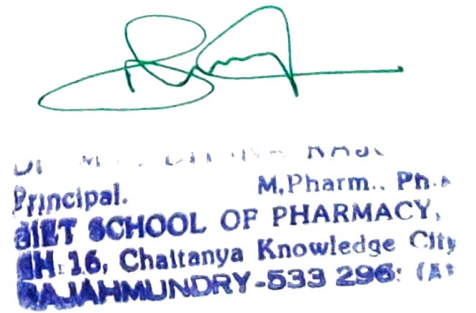 Principal. M.Pharm.. Ph.
GIET SCHOOL OF PHARMACY,
NH.16, Chaitanya Knowledge City
RAJAHMUNDRY-533 296: (A